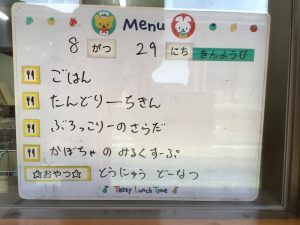 Menu
8 がつ 29 にち きんようび
ごはん
たんどりーちきん
ぶろっこりーのさらだ
かぼちゃのみるくすーぷ
☆おやつ☆ とうにゅう どーなつ
Tasty Lunch Time